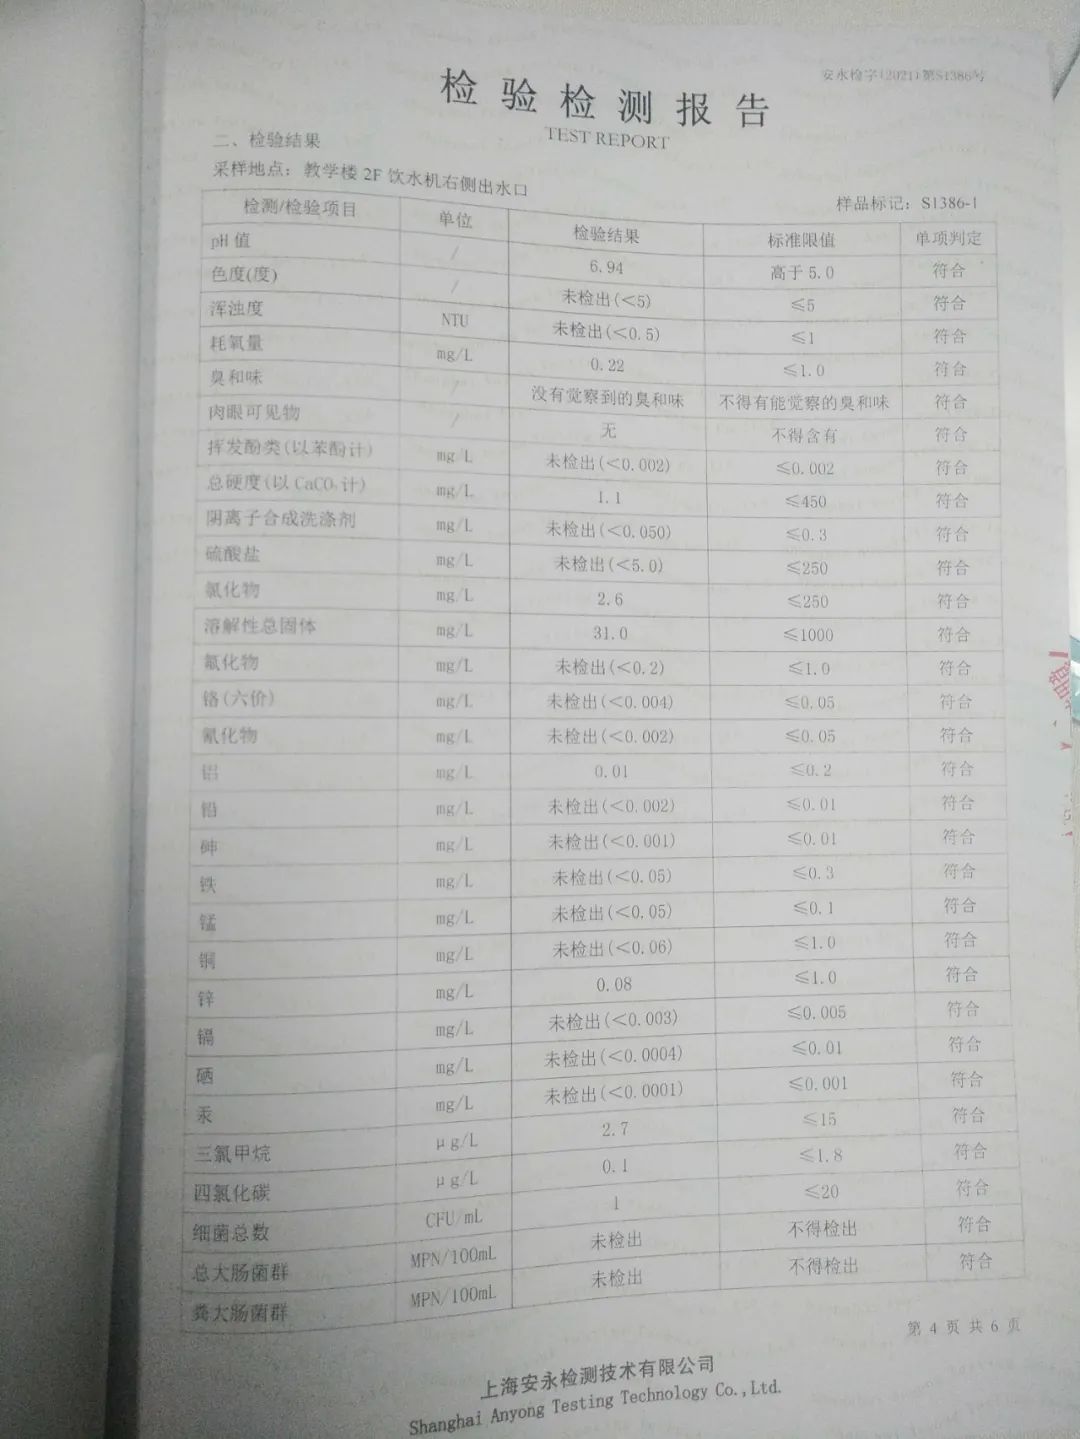 安永检字(2021)第S1386号
检验检测报告
TEST REPORT
二、检验结果
采样地点：教学楼 2F 饮水机右侧出水口
样品标记：S1386-1
检测/检验项目 单位 检验结果 标准限值 单项判定
pH 值 / 6.94 高于 5.0 符合
色度(度) / 未检出(<5) ≤5 符合
浑浊度 NTU 未检出(<0.5) ≤1 符合
耗氧量 mg/L 0.22 ≤1.0 符合
臭和味 / 没有觉察到的臭和味 不得有能觉察的臭和味 符合
肉眼可见物 / 无 不得含有 符合
挥发酚类(以苯酚计) mg/L 未检出(<0.002) ≤0.002 符合
总硬度(以 CaCO₃计) mg/L 1.1 ≤450 符合
阴离子合成洗涤剂 mg/L 未检出(<0.050) ≤0.3 符合
硫酸盐 mg/L 未检出(<5.0) ≤250 符合
氯化物 mg/L 2.6 ≤250 符合
溶解性总固体 mg/L 31.0 ≤1000 符合
氟化物 mg/L 未检出(<0.2) ≤1.0 符合
铬(六价) mg/L 未检出(<0.004) ≤0.05 符合
氰化物 mg/L 未检出(<0.002) ≤0.05 符合
铝 mg/L 0.01 ≤0.2 符合
铅 mg/L 未检出(<0.002) ≤0.01 符合
砷 mg/L 未检出(<0.001) ≤0.01 符合
铁 mg/L 未检出(<0.05) ≤0.3 符合
锰 mg/L 未检出(<0.05) ≤0.1 符合
铜 mg/L 未检出(<0.06) ≤1.0 符合
锌 mg/L 0.08 ≤1.0 符合
镉 mg/L 未检出(<0.003) ≤0.005 符合
硒 mg/L 未检出(<0.0004) ≤0.01 符合
汞 mg/L 未检出(<0.0001) ≤0.001 符合
三氯甲烷 μg/L 2.7 ≤15 符合
四氯化碳 μg/L 0.1 ≤1.8 符合
细菌总数 CFU/mL 1 ≤20 符合
总大肠菌群 MPN/100mL 未检出 不得检出 符合
粪大肠菌群 MPN/100mL 未检出 不得检出 符合
第 4 页 共 6 页
上海安永检测技术有限公司
Shanghai Anyong Testing Technology Co.,Ltd.